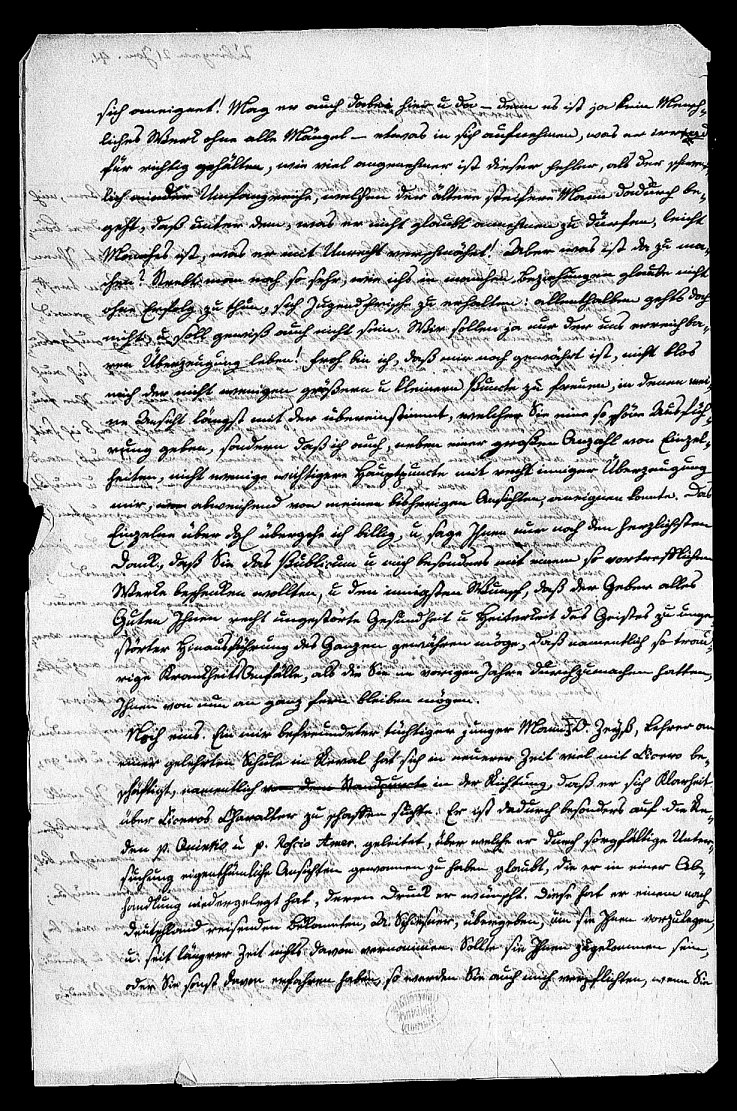 sich aneignet! Mag er auch dabei hier u da – denn es ist ja kein Mensch-
liches Werk ohne alle Mängel – etwas in sich aufnehmen, was er irrend
für richtig gehalten, wie viel angenehmer ist dieser Fehler, als der
lich minder Umfangreiche, welchen der ältere steifere Mann dadurch be-
geht, daß unter dem, was er nicht glaubt annehmen zu dürfen, leicht
Manches ist, was er mit Unrecht verschmäht! Aber was ist da zu ma-
chen? Strebt man noch so sehr, wie ichs in manchen Beziehungen glaube nicht
ohne Erfolg zu thun, sich Jugendfrische zu erhalten: allenthalben gehts doch
nicht, u. soll gewiß auch nicht sein. Wir sollen ja nur der uns erreichba-
ren Überzeugung leben! Froh bin ich, daß mir noch gewährt ist, nicht blos
mich der nicht wenigen größern u kleinern Puncte zu freuen, in denen mei-
ne Ansicht längst mit der übereinstimmt, welcher Sie eine so schöne Ausfüh-
rung geben, sondern daß ich auch, neben einer großen Anzahl von Einzel-
heiten, nicht wenige wichtigere Hauptpuncte mit recht inniger Überzeugung
mir, abweichend von meinen bisherigen Ansichten, aneignen konnte. Das
Einzelne über dgl übergehe ich billig, u. sage Ihnen nur noch den herzlichsten
Dank, daß Sie das Publicum u mich besonders mit einem so vortrefflichen
Werke beschenken wollten, u den innigsten Wunsch, daß der Geber alles
Guten Ihnen recht ungestörte Gesundheit u Heiterkeit des Geistes zu unge-
störter Hinausführung des Ganzen gewähren möge, daß namentlich so trau-
rige Krankheitsanfälle, als die Sie im vorigen Jahre durchzumachen hatten,
Ihnen von nun an ganz fern bleiben mögen.
Noch eins. Ein mir befreundeter tüchtiger junger Mann, D. Zeyß, Lehrer an
einer gelehrten Schule in Reval hat sich in neuerer Zeit viel mit Cicero be-
schäftigt, namentlich von dem Standpuncte in der Richtung, daß er sich Klarheit
über Ciceros Charakter zu schaffen suchte. Er ist dadurch besonders auf die Re-
den p. Quinktio u p. Roscio Amer. geleitet, über welche er durch sorgfältige Unter-
suchung eigenthümliche Ansichten gewonnen zu haben glaubt, die er in einer Ab-
handlung niedergelegt hat, deren Druck er wünscht. Diese hat er einem nach
Deutschland reisenden Bekannten, übergeben, um sie Ihnen vorzulegen,
u. seit längerer Zeit nichts davon vernommen. Sollte sie Ihnen zugekommen sein,
oder Sie sonst davon erfahren haben, so werden Sie auch mich verpflichten, wenn Sie